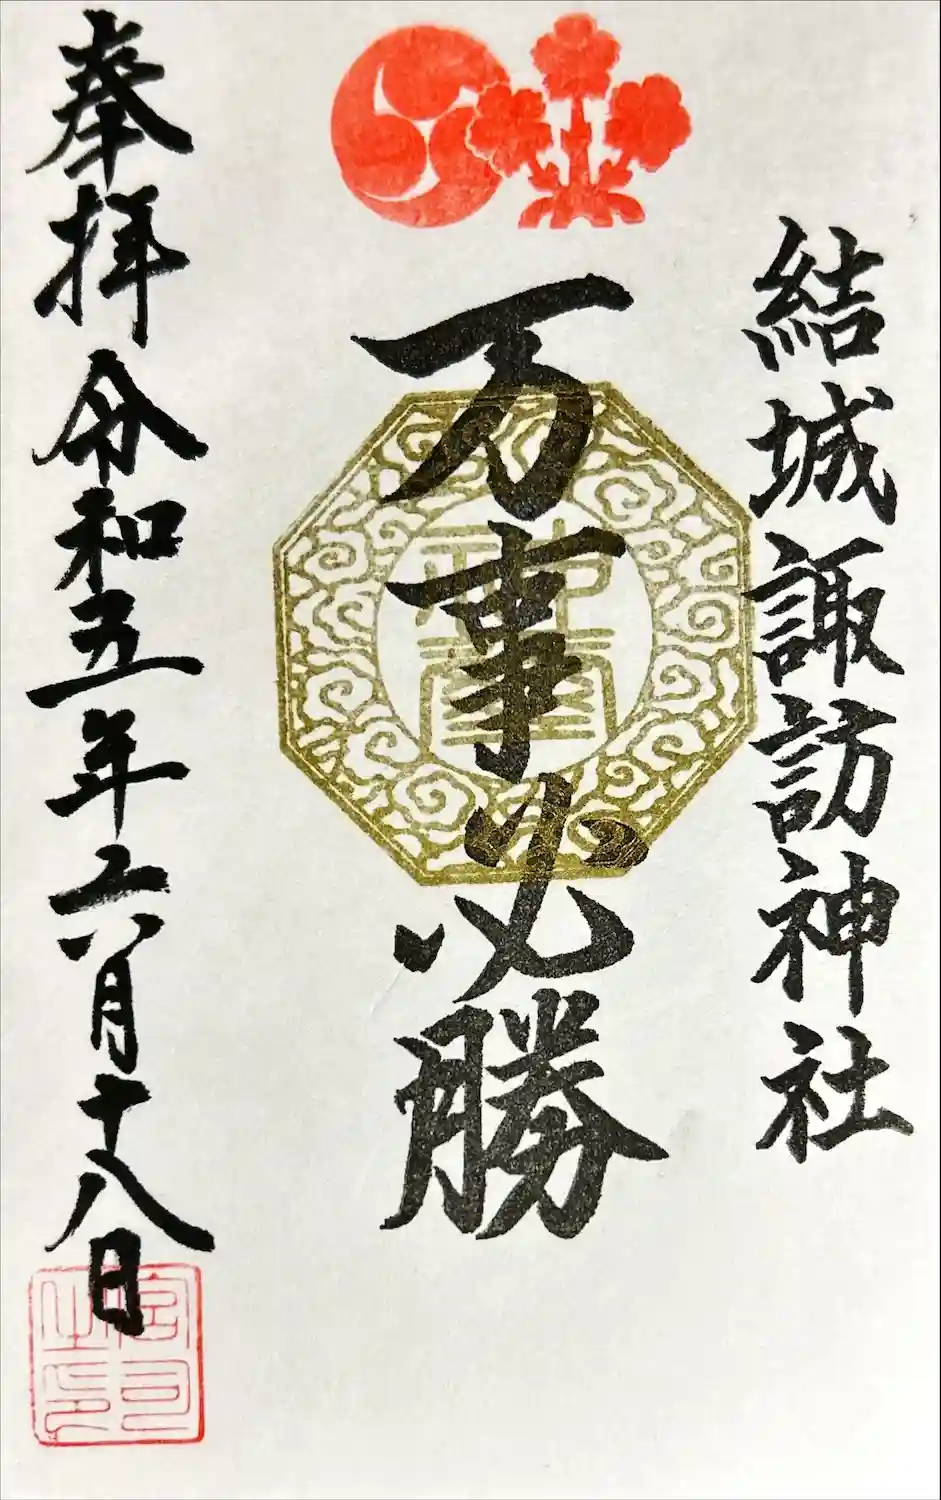 結城諏訪神社
万事必勝
奉拝 令和五年六月十八日
宮司之印